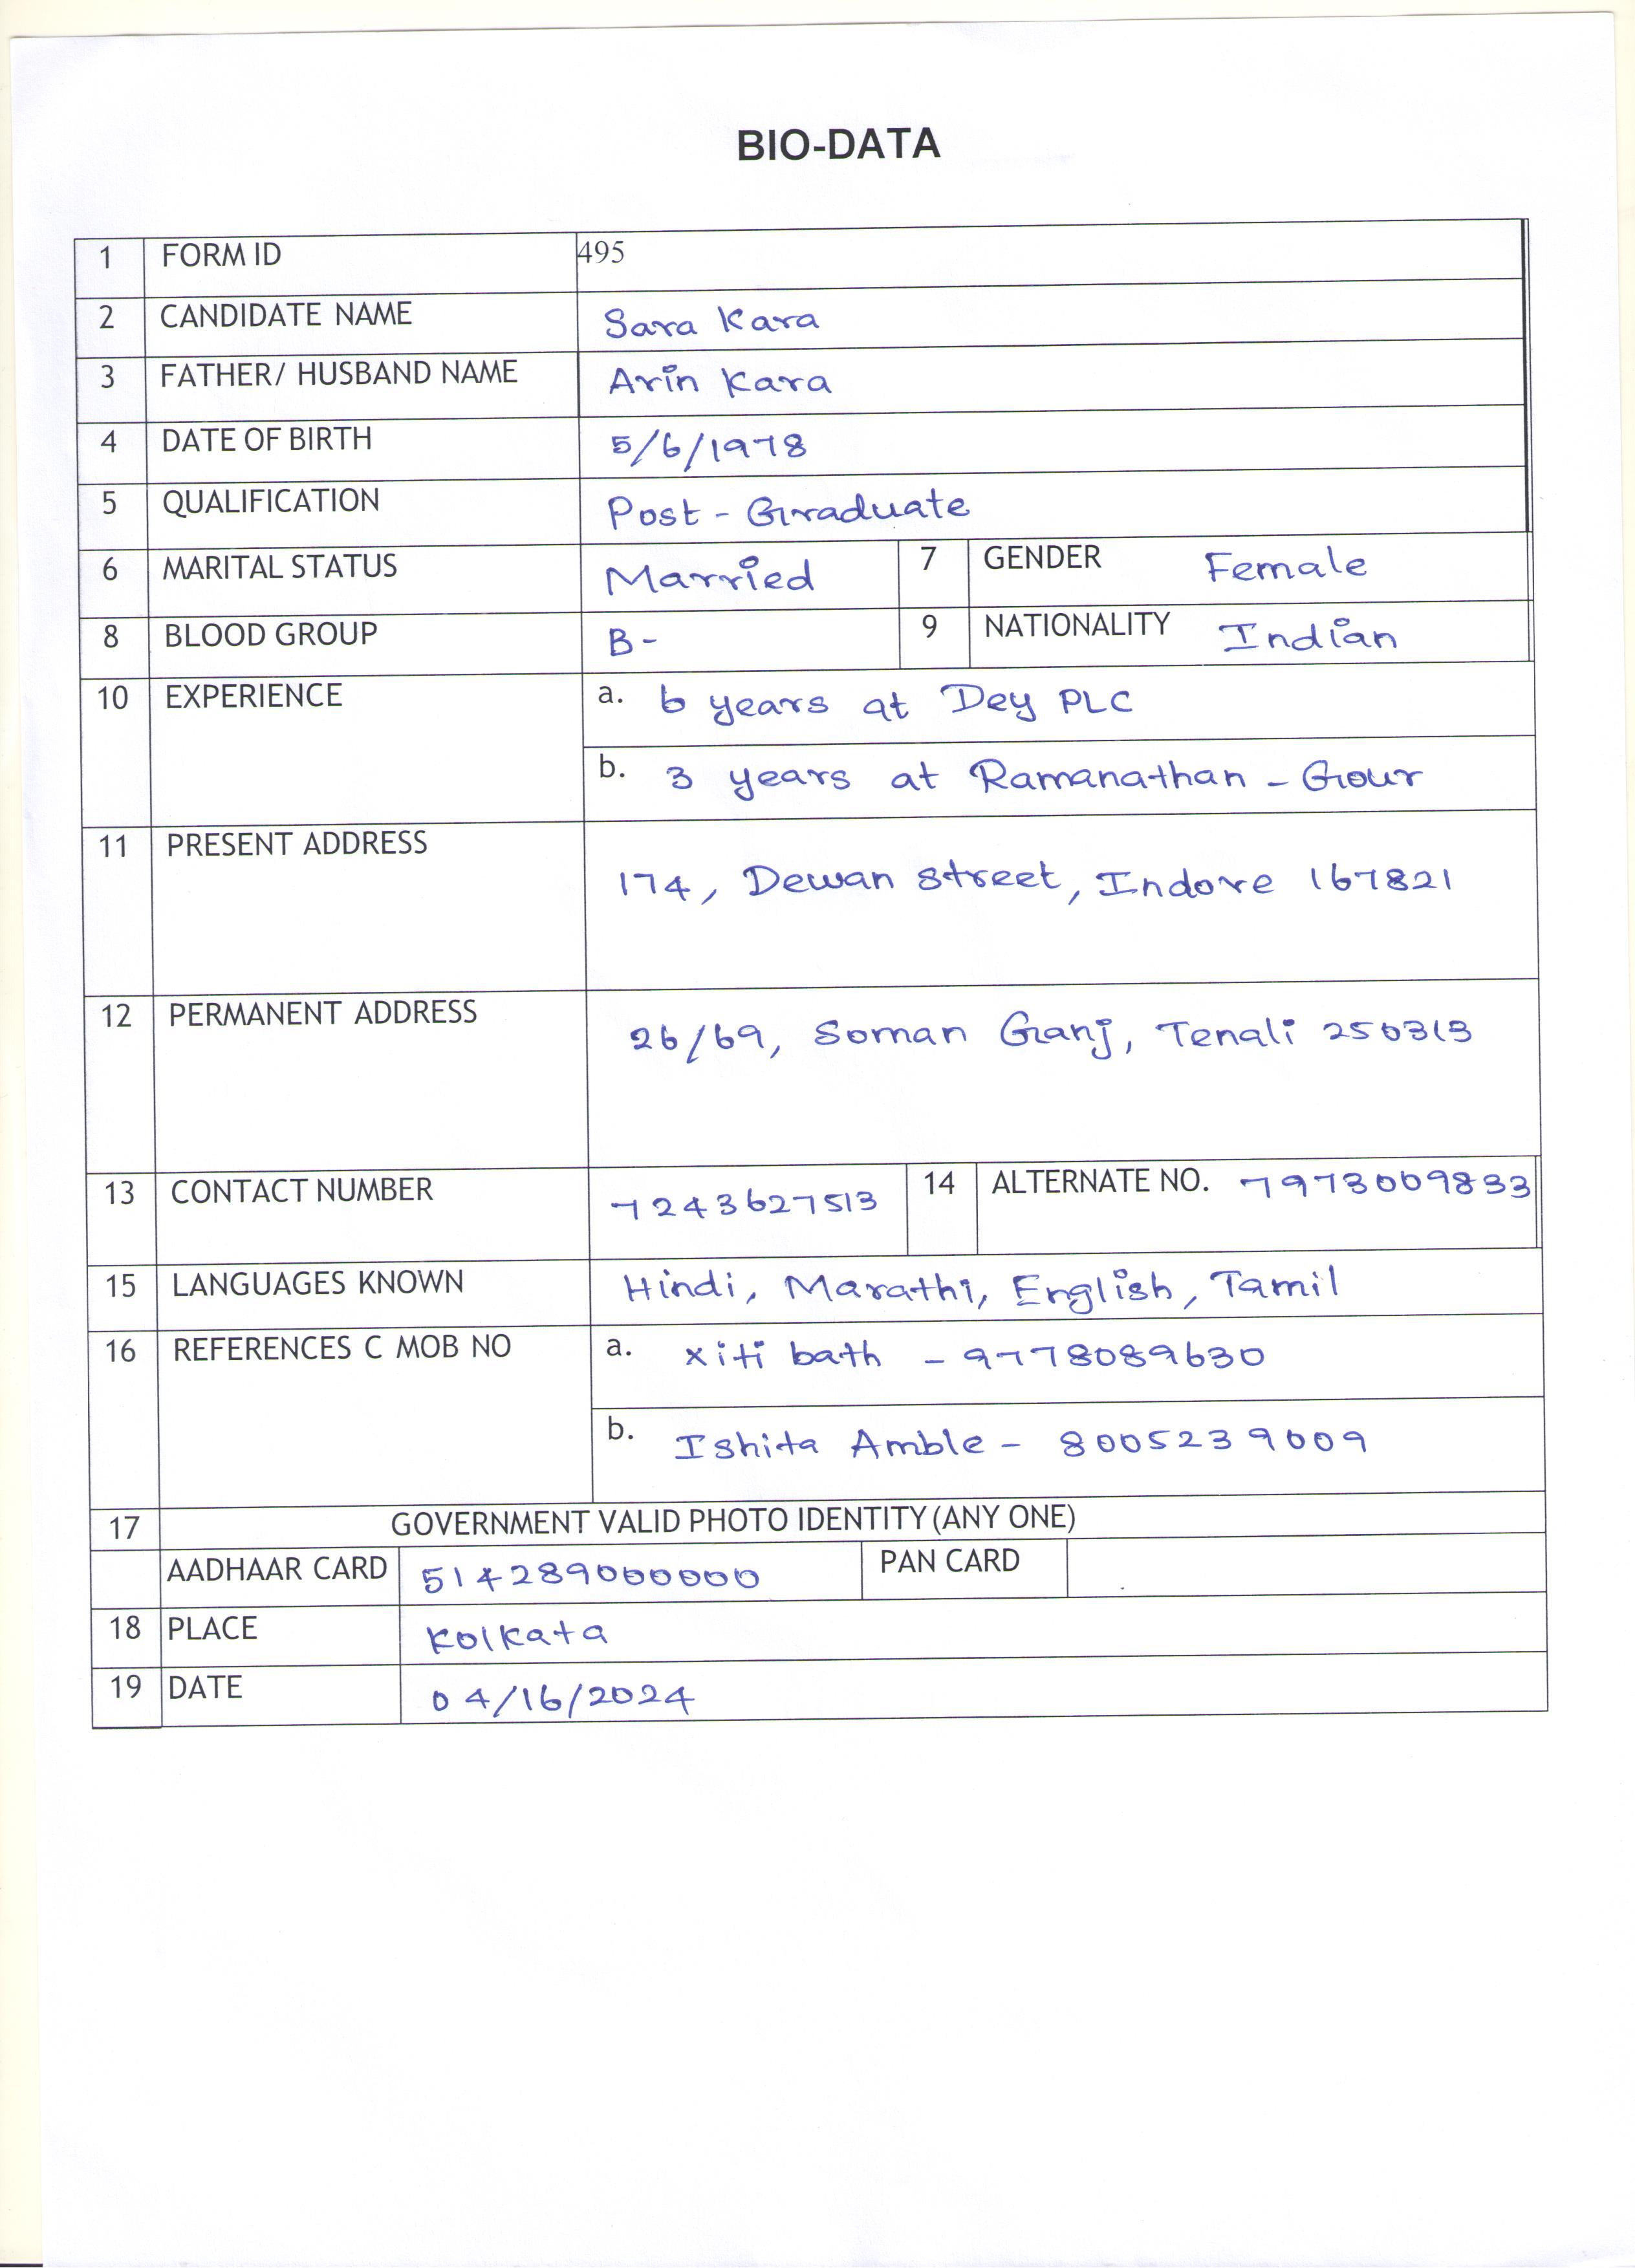 BIO-DATA
1 FORM ID 495
2 CANDIDATE NAME Sara Kara
3 FATHER/ HUSBAND NAME Arin Kara
4 DATE OF BIRTH 5/6/1978
5 QUALIFICATION Post - Graduate
6 MARITAL STATUS Married 7 GENDER Female
8 BLOOD GROUP B- 9 NATIONALITY Indian
10 EXPERIENCE a. 6 years at Dey PLC
b. 3 years at Ramanathan - Gour
11 PRESENT ADDRESS
174, Dewan street, Indore 167821
12 PERMANENT ADDRESS
26/69, Soman Ganj, Tenali 250313
13 CONTACT NUMBER 7243627513 14 ALTERNATE NO. 7973009833
15 LANGUAGES KNOWN Hindi, Marathi, English, Tamil
16 REFERENCES C MOB NO a. xiti bath - 9778089630
b. Ishita Amble - 8005239009
17 GOVERNMENT VALID PHOTO IDENTITY (ANY ONE)
AADHAAR CARD 514289000000 PAN CARD
18 PLACE Kolkata
19 DATE 04/16/2024